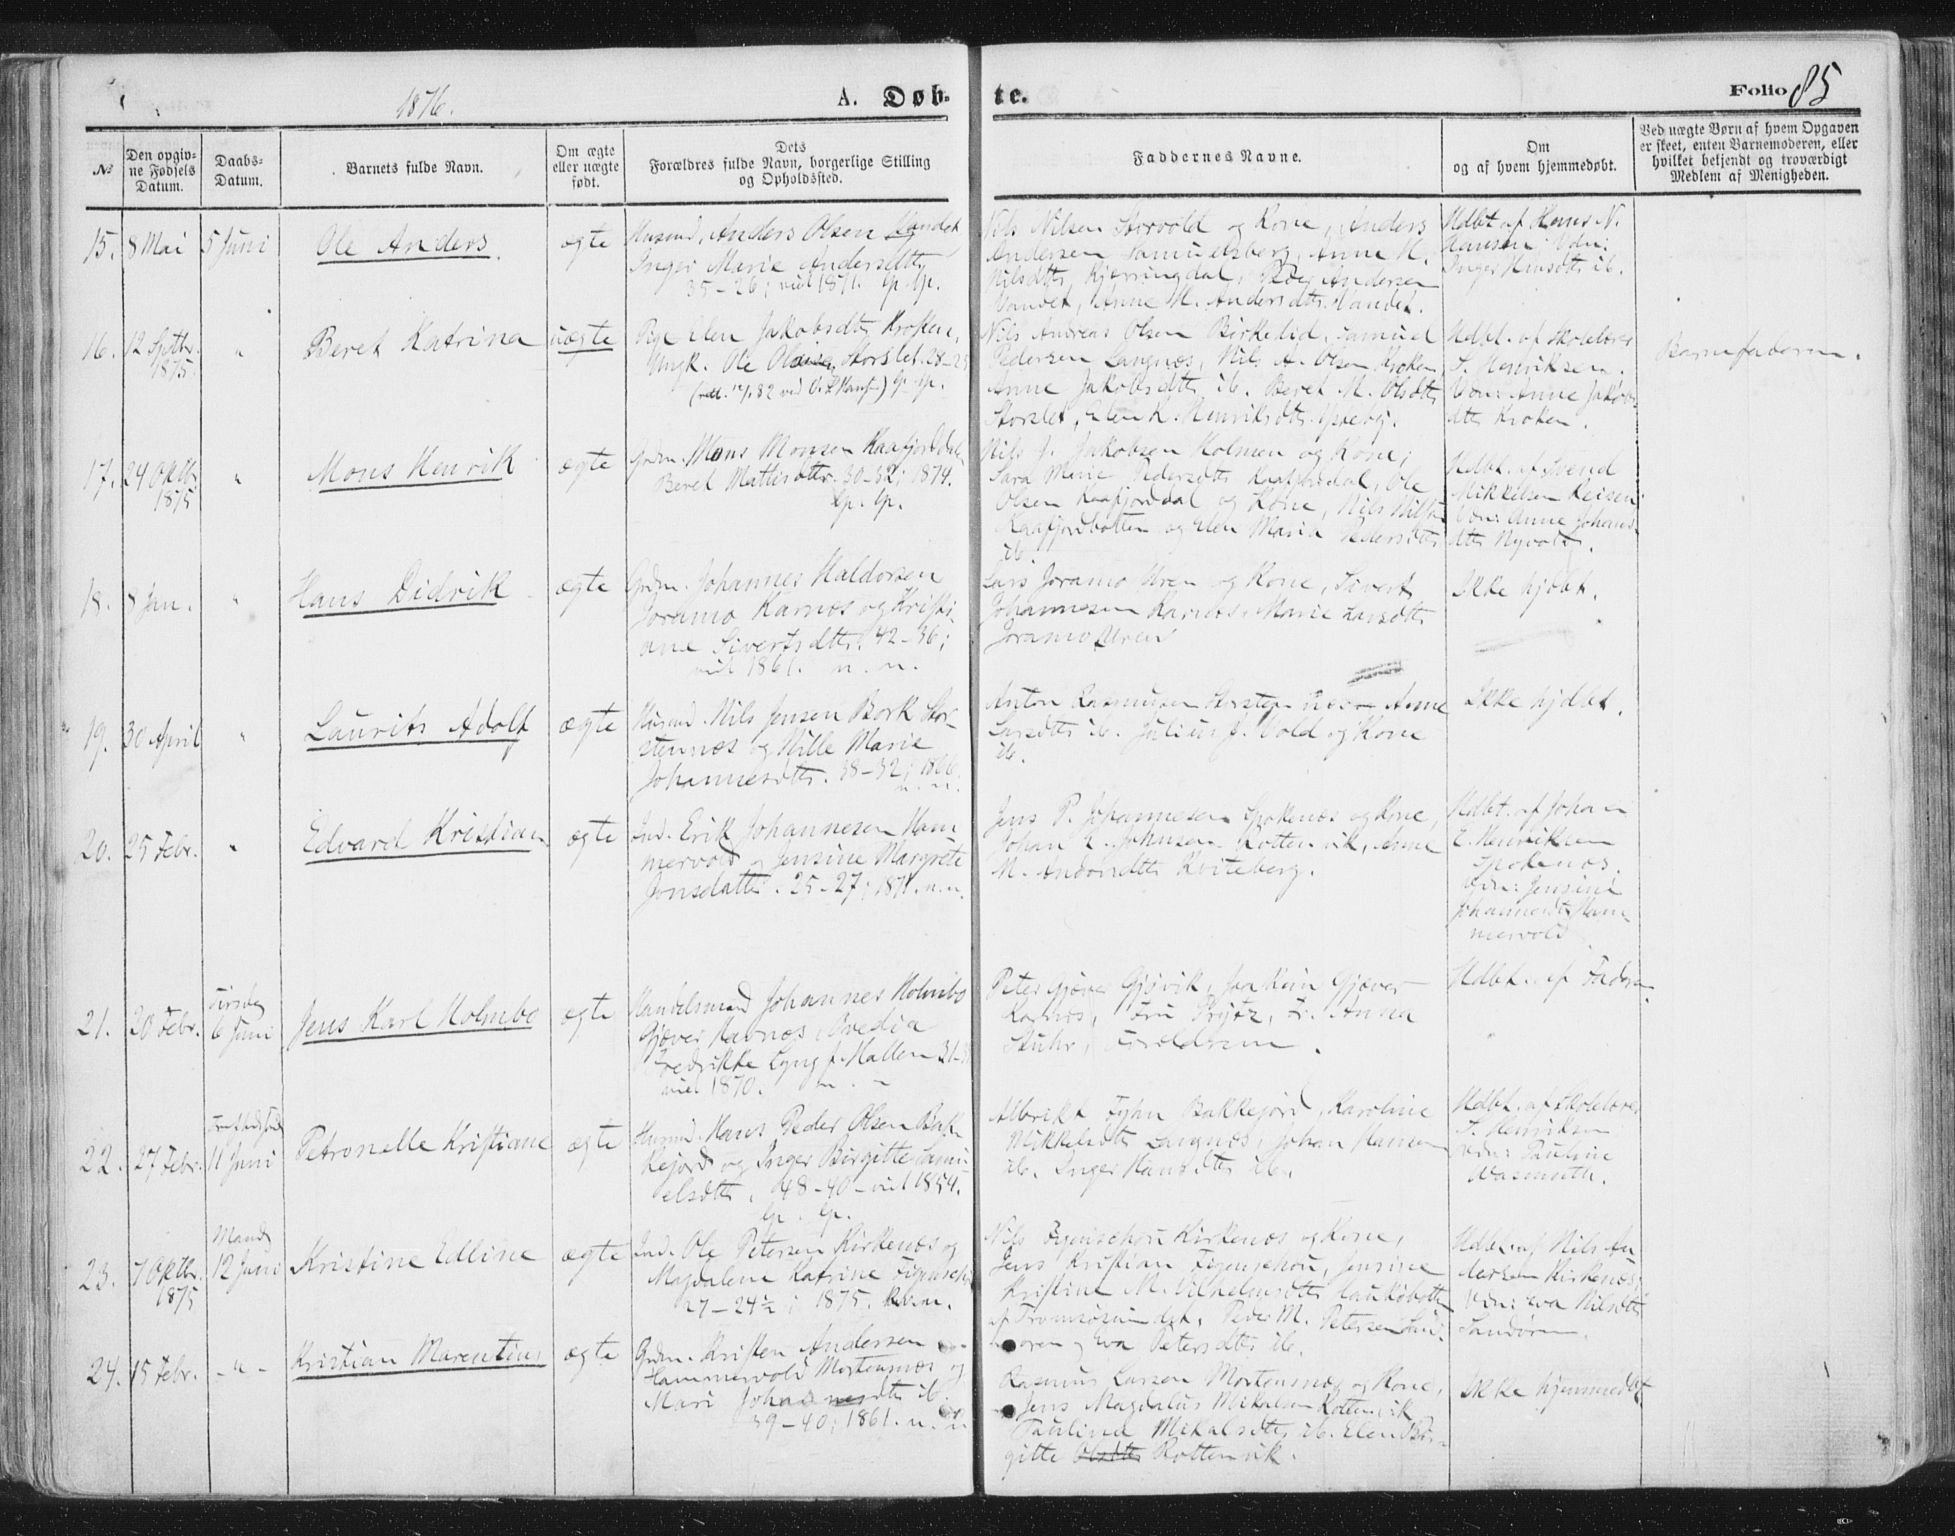 1876.
A. Døb-
te.
Folio 85
№
Den opgiv-
ne Fødsels
Datum.
Daabs-
Datum.
Barnets fulde Navn.
Om ægte
eller uægte
født.
Dets
Forældres fulde Navn, borgerlige Stilling
og Opholdssted.
Faddernes Navne.
Om
og af hvem hjemmedøbt.
Ved uægte Børn af hvem Opgaven
er skeet, enten Barnemoderen, eller
hvilket bekjendt og troværdigt
Medlem af Menigheden.
15.
8 Mai
5 Juni
Ole Anders.
ægte
Husmd. Anders Olsen
Inger Marie Andersdtr
35-26; viet 1871. lp. lp.
Nils Nilsen Storvold og Kone, Anders
Andersen Samuelsberg, Anne M.
Nilsdtr Kjerringdal, Peder Andersen
Anne M. Andersdtr
Hdbt. af Hans N.
Hansen
Inger Hansdtr ib.
16.
12 Septbr.
1875.
"
Beret Katrina
uægte
Pige Elen Jakobsdtr Kroken,
Ungk. Ole Storslet. 28-25
lp. lp.
Nils Andreas Olsen Birkelid, Samuel
Pedersen Langnæs, Nils A. Olsen Kroken,
Anne Jakobsdtr ib. Beret M. Olsdtr
Storslet, Elen K. Henriksdtr
Hdbt. af Skolelærer
S. Henriksen.
Vdn: Anne Jakobs-
dtr Kroken.
Barnefaderen.
17.
24 Oktbr.
1875
"
Mons Henrik
ægte
Grdm. Mons Monsen Kaafjorddal
Beret Mattisdtr. 30-32; 1874.
lp. lp.
Nils J. Jakobsen Holmen og Kone,
Sara Marie Pedersdtr Kaafjorddal, Ole
Olsen Kaafjorddal og Kone, Nils Nilsen
Kaafjordbotten og Elen Maria Pedersdtr
ib.
Hdbt. af Svend
Mikkelsen Reisen
Vdn: Anne Johans-
dtr Nyvold.
18.
8 Jan.
"
Hans Didrik
ægte
Grdm. Johannes Haldorsen
Joramo Karnes og Kristi-
ane Sivertsdtr. 42-36;
viet 1861. n. n.
Lars Joramo Uren og Kone, Sivert
Johannesen Karnes, Marie Larsdtr
Joramo Uren
Ikke hjdbt.
19.
30 April
"
Laurits Adolf
ægte
Husmd. Nils Jensen Bork Stor-
stennæs og Nille Marie
Johannesdtr. 38-32; 1866.
n. n.
Anton Rasmusen Storstennæs, Anne
Larsdtr ib. Julius J. Vold og Kone
ib.
Ikke hjdbt.
20.
25 Febr.
"
Edvard Kristian
ægte
Ind. Erik Johannesen Ham-
mervold og Jensine Margrete
Jonsdatter. 25-27; 1871. n. n.
Jens P. Johannesen Spokenæs og Kone,
Johan E. Johnsen Rottenvik, Anne
M. Andorsdtr Kviteberg.
Hdbt. af Johan
E. Henriksen
Spokenæs.
Vdn: Jensine
Johannesdtr Ham-
mervold
21.
20 Febr.
Tirsdag
6 Juni
Jens Karl Holmbo
ægte
Handelsmand Johannes Holmbo
Gjæver Havnæs, Ovedia
Fredrikke Lyng f. Hallen 31-
viet 1870. n. n.
Peter Gjæver Gjøvik, Joakim Gjæver
Fru Prytz, Fr. Anna
Stuhr, Forældrene.
Hdbt. af Faderen
22.
27 Febr.
11 Juni
Petronelle Kristiane
ægte
Husmd. Hans Peder Olsen Bak-
kejord og Inger Birgitte Samu-
elsdtr. 48-40 - viet 1854.
lp. lp.
Albrikt Fyhn Bakkejord, Karoline
Mikkelsdtr Langnæs, Johan Hansen
ib. Inger Hansdtr ib.
Hdbt. af Skolelærer
S. Henriksen
Vdn: Pauline
Wasmuth.
23.
7 Oktbr.
1875
Mandg
12 Juni
Kristine Edline
ægte
Ind. Ole Petersen Kirkenæs og
Magdalena Katrine Figenschou
27-24½; 1875.
Nils Figenschou Kirkenæs og Kone,
Jens Kristian Figenschou, Jensine
Kristine M. Vilhelmsdtr Laukøbotten
af Tromsøsundet, Peder M. Petersen Sand-
oren og Eva Petersdtr ib.
Hdbt. af Nils An-
dersen Kirkenæs;
Vdn: Eva Nilsdtr
Sandøren.
24.
15 Febr.
- " -
Kristian Marentius
ægte
Grdm. Kristen Andersen
Hammervold Mortensnæs og
Mari Johannesdtr ib.
39-40; 1861. n. n.
Rasmus Larsen Mortensnæs og Kone,
Jens Magdalus Mikalsen Rottenvik
Paulina Mikalsdtr ib. Elen Bir-
gitte Olsdtr Rottenvik.
Ikke hjemmedbt